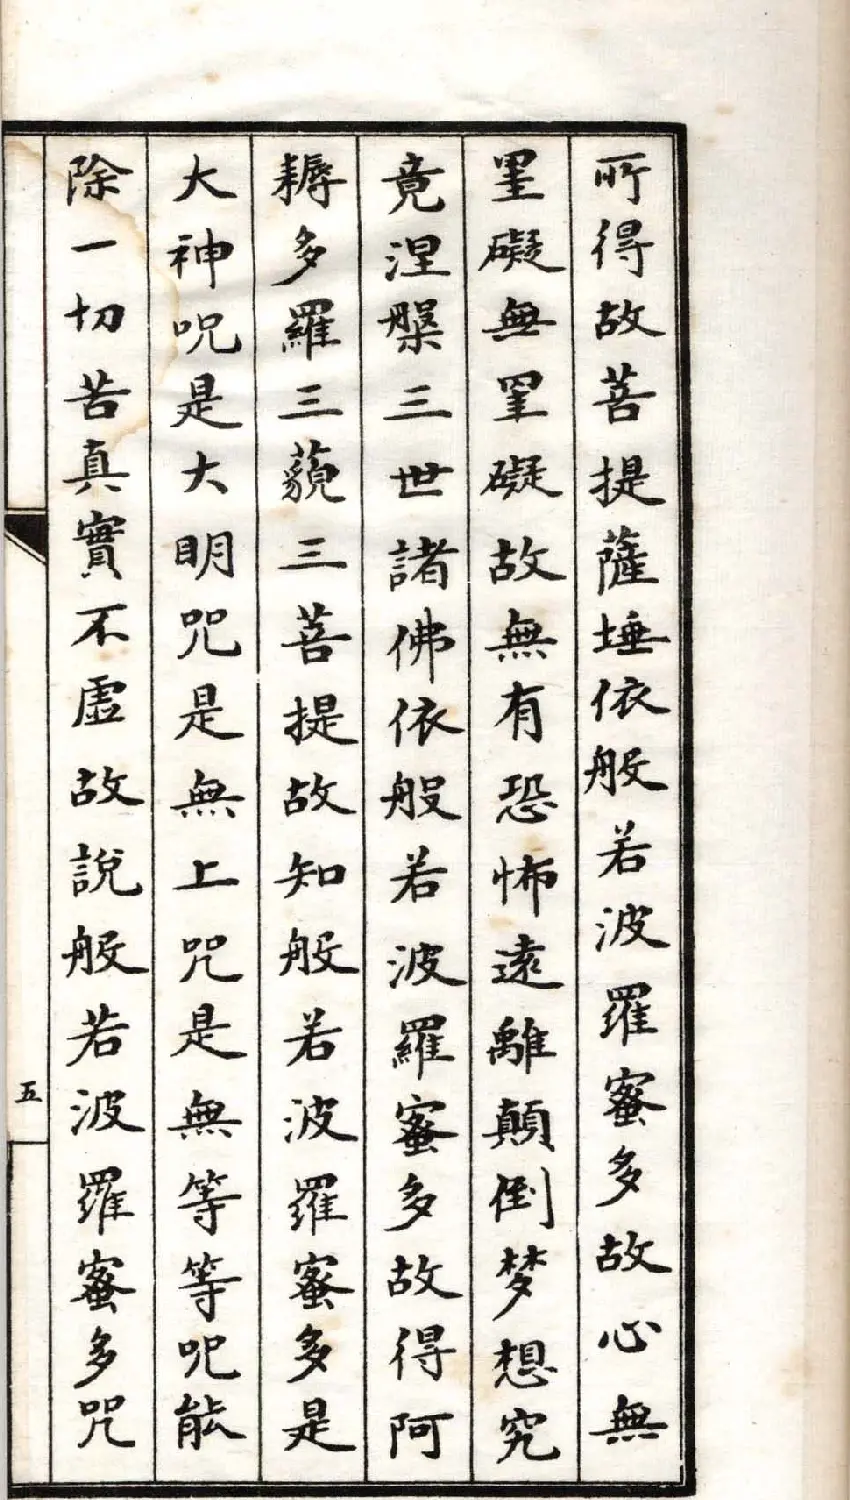 所得故菩提薩埵依般若波羅蜜多故心無
罣礙無罣礙故無有恐怖遠離顛倒梦想究
竟涅槃三世諸佛依般若波羅蜜多故得阿
耨多羅三藐三菩提故知般若波羅蜜多是
大神咒是大明咒是無上咒是無等等呪能
除一切苦真實不虛故說般若波羅蜜多咒
五